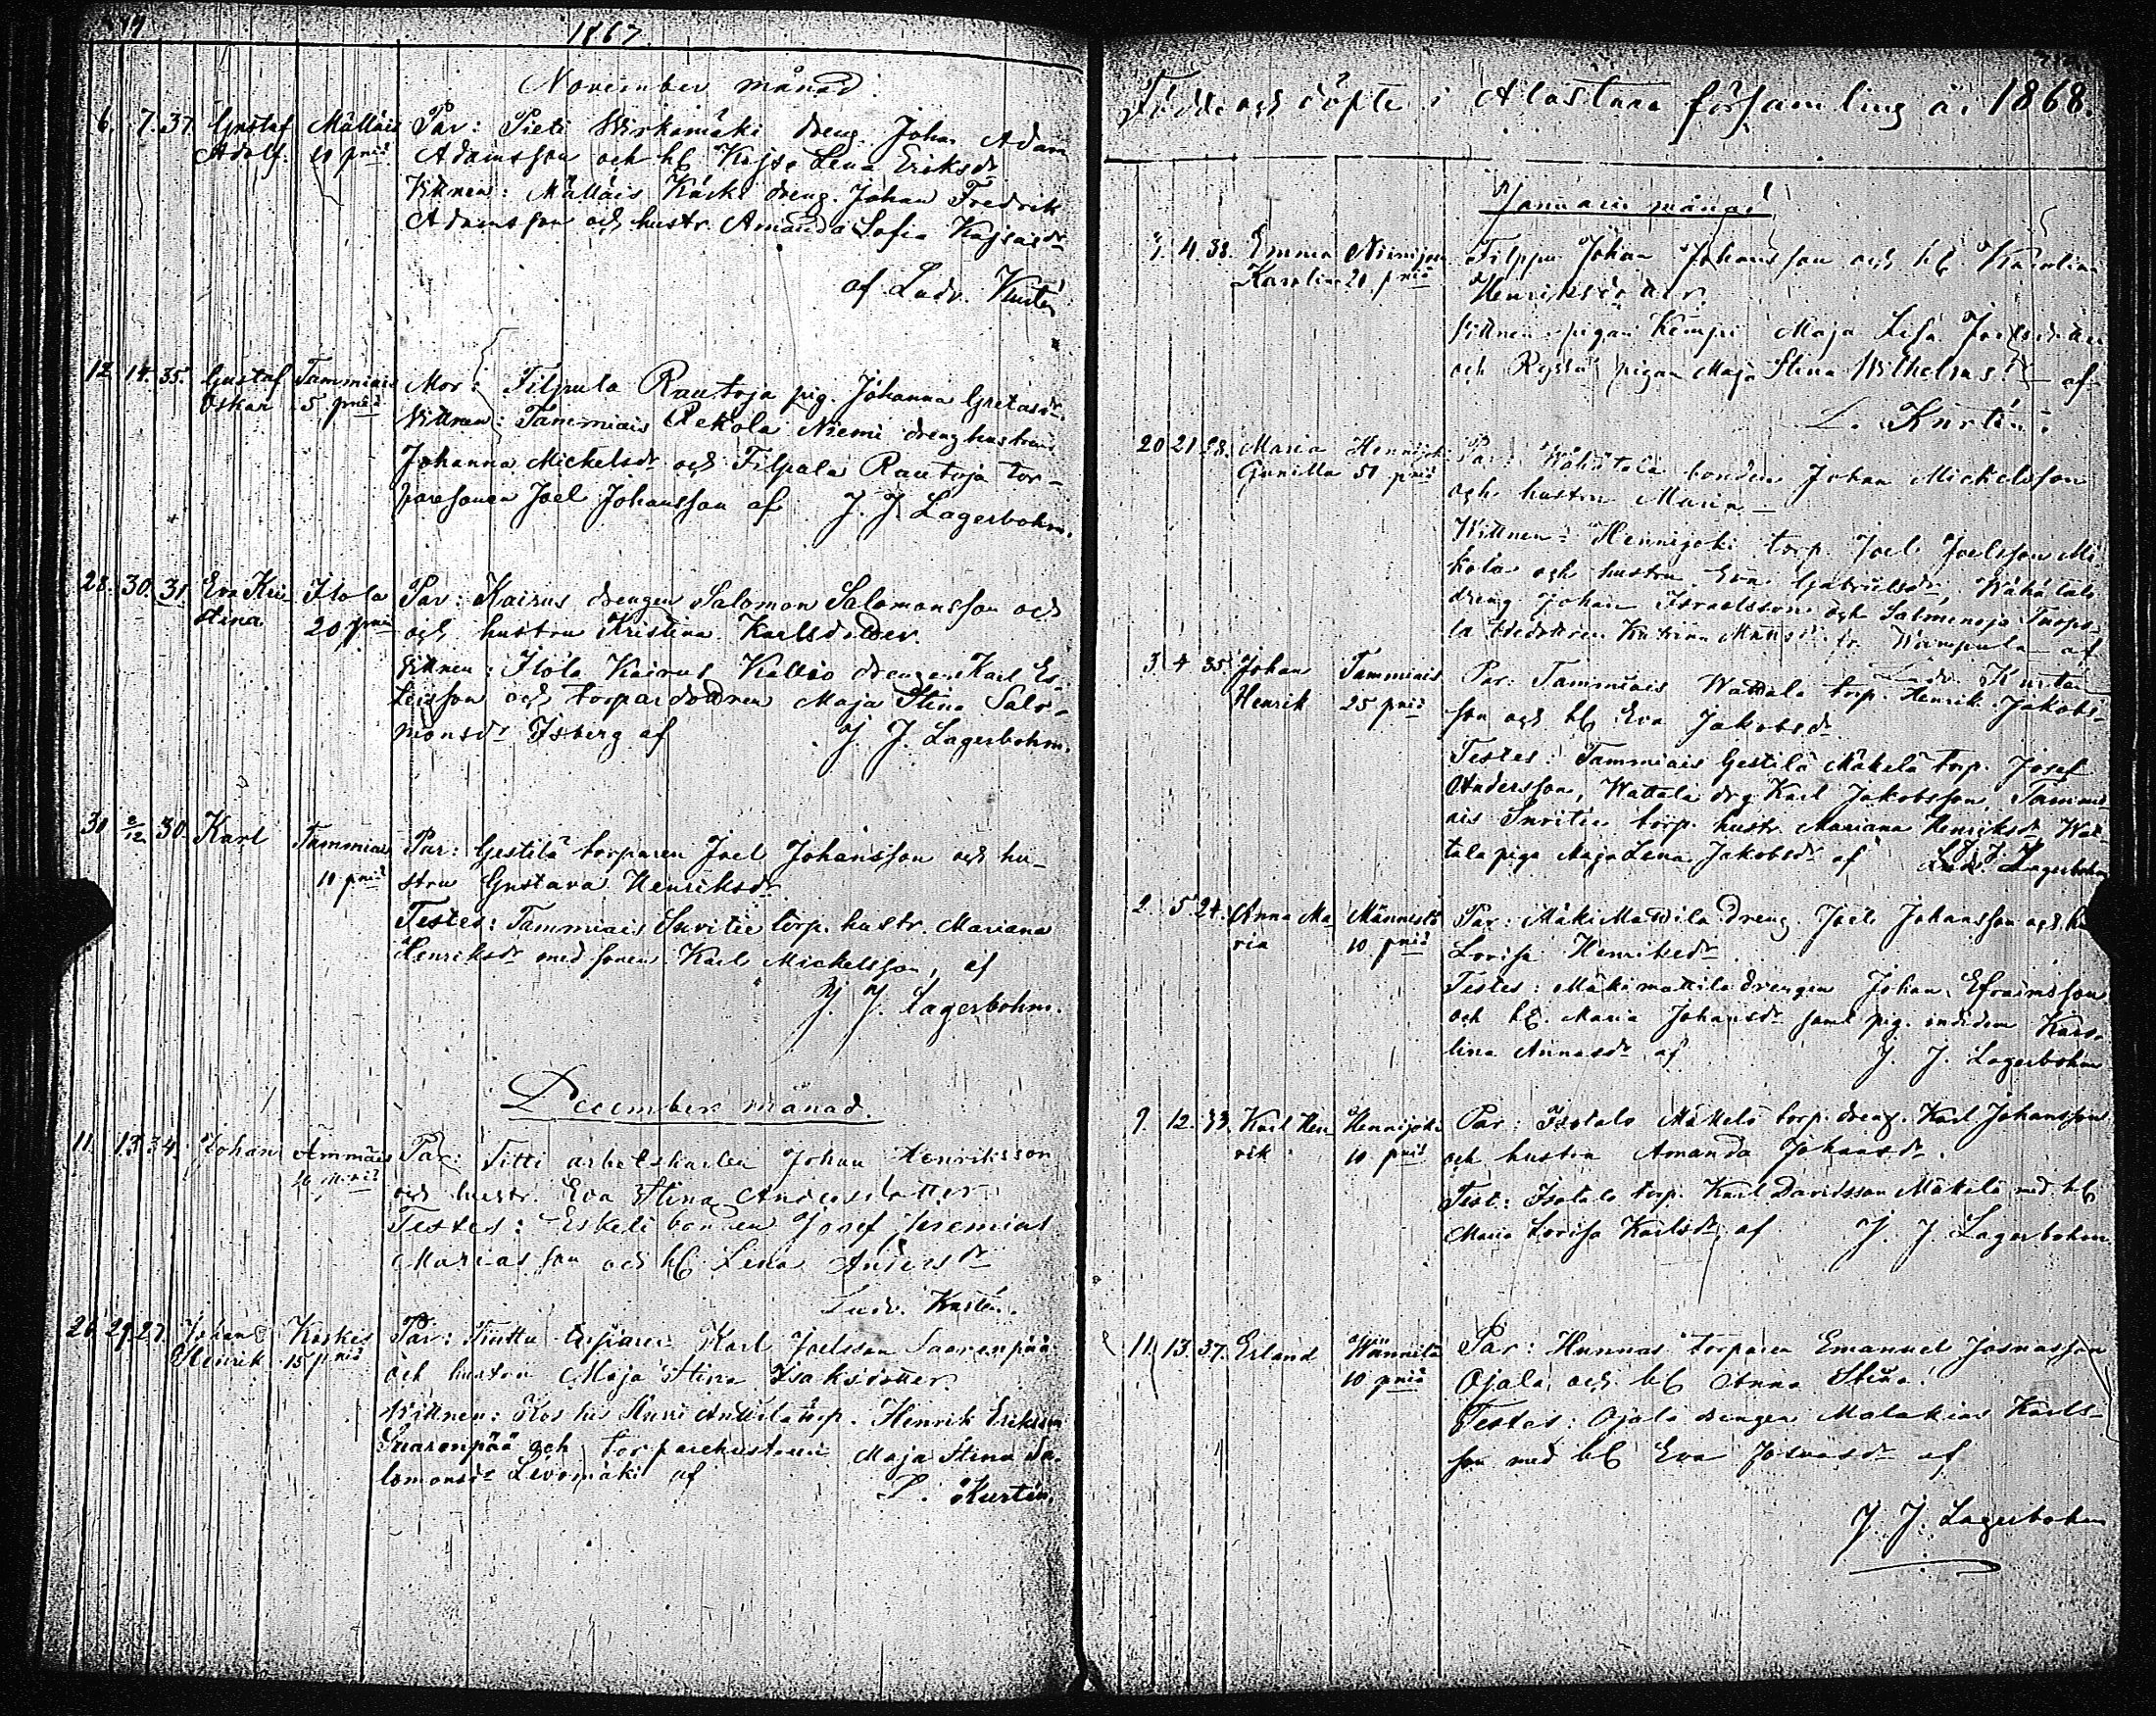 1867.
November månad.
6. 7. 37. Gustaf Mälläis Par: Pieti Wirkamäki dreng. Johan Adam
Adolf. 10 pnia Adamsson och h Kajsa Lena Eriksdr
Vittnen: Mälläis Käck dreng. Johan Fredrik
Adamsson och hustr. Amanda Sofia Kajsasdr
af Ludv. Kurtén
12 14. 35. Gustaf Tammiais Mor: Filpula Rautoja pig. Johanna Gretasdr.
Oskar 5 pnia Vittnen: Tammiais Pekola Niemi drenghustrun
Johanna Mickelsdr och Filpula Rautoja tor-
paresonen Joel Johansson af J. J. Lagerbohm.
28. 30. 31 Eva Kri- Ilola Par: Kairus drengen Salomon Salomonsson och
stina 20 pnia och hustru Kristina Karlsdotter.
Vittnen: Ilola Kairus Kallio drengen Karl Es-
kelsson och torpardottren Maja Stina Salo-
monsdr Isberg af J. J. Lagerbohm.
30 2/12 30. Karl Tammiais Par: Gestilä torparen Joel Johansson och hu-
10 pnia stru Gustava Henriksdr
Testes: Tammiais Suvitie torp. hustr. Mariana
Henriksdr med sonen Karl Mickelsson, af
J. J. Lagerbohm.
December månad.
11. 13 34. Johan Ammäis Par: Titti arbetskarlen Johan Henriksson
10 pnia och hustr. Eva Stina Andersdotter
Testes: Eskeli bonden Josef Jeremias
Mariasson och h Lena Andersdr
Ludv. Kurtén.
26 29. 27. Johan Koskis Par: Tuttu torparen Karl Joelsson Saarenpää
Henrik 15 pnia och hustru Maja Stina Isaksdotter.
Vittnen: Koskis Anttila torp. Henrik Eriksson
Saarenpää och torparehustrun Maja Stina Sa-
lomonsdr Levomäki af L. Kurtén.
Födde och döpte i Alastaro församling år 1868.
Januarii månad
4. 38. Emma Niemijoki Filppu Johan Johansson och h Karolina
Karolina 20 pnia Henriksdotter.
Vittnen: pigan Kemppi Maja Lisa
och pigan Maja Stina Wilhelms af
L. Kurtén.
20 21 28. Maria Hennijoki Par: Wähätalo bonden Johan Mickelsson
Gunilla 51 pnia och hustru Maria
Vittnen: Hennijoki torp. Joel Joelsson Mi-
kola och hustru Eva Gabrielsdr, Wähätalo
dreng Johan Israelsson och Salmenoja
Wampula af
Ludv. Kurtén
3 4 35 Johan Tammiais Par: Tammiais Wattala torp. Henrik Jakobs-
Henrik 25 pnia son och h Eva Jakobsdr
Testes: Tammiais Gestilä Mäkelä torp. Josef
Andersson, Wattala drg Karl Jakobsson, Tammi-
ais Suvitie torp. hustr. Mariana Henriksdr Wat-
tala piga Maja Lena Jakobsdr af J. J. Lagerbohm
2. 5 24. Anna Ma- Männistö Par: Mäki Mattila dreng. Joel Johansson och h
ria 10 pnia Lovisa Henriksdr
Testes: Mäkimattila drengen Johan Efraimsson
och h Maria Johansdr samt pig. indidem Karo-
lina Annasdr af J. J. Lagerbohm
9. 12. 33. Karl Hen- Hennijoki Par: Isotalo Mäkelä torp. dreng. Karl Johansson
rik 10 pnia och hustru Amanda Johansdr.
Test: Isotalo torp. Karl Davidsson Mäkelä med h
Maria Lovisa Karlsdr, af J. J. Lagerbohm
11. 13. 37. Erland Wännilä Par: Hunnas torparen Emanuel Josuasson
10 pnia Ojala och h Anna Stina.
Testes: Ojala drengen Malakias Karls-
son med h Eva Josuasdr af
J. J. Lagerbohm